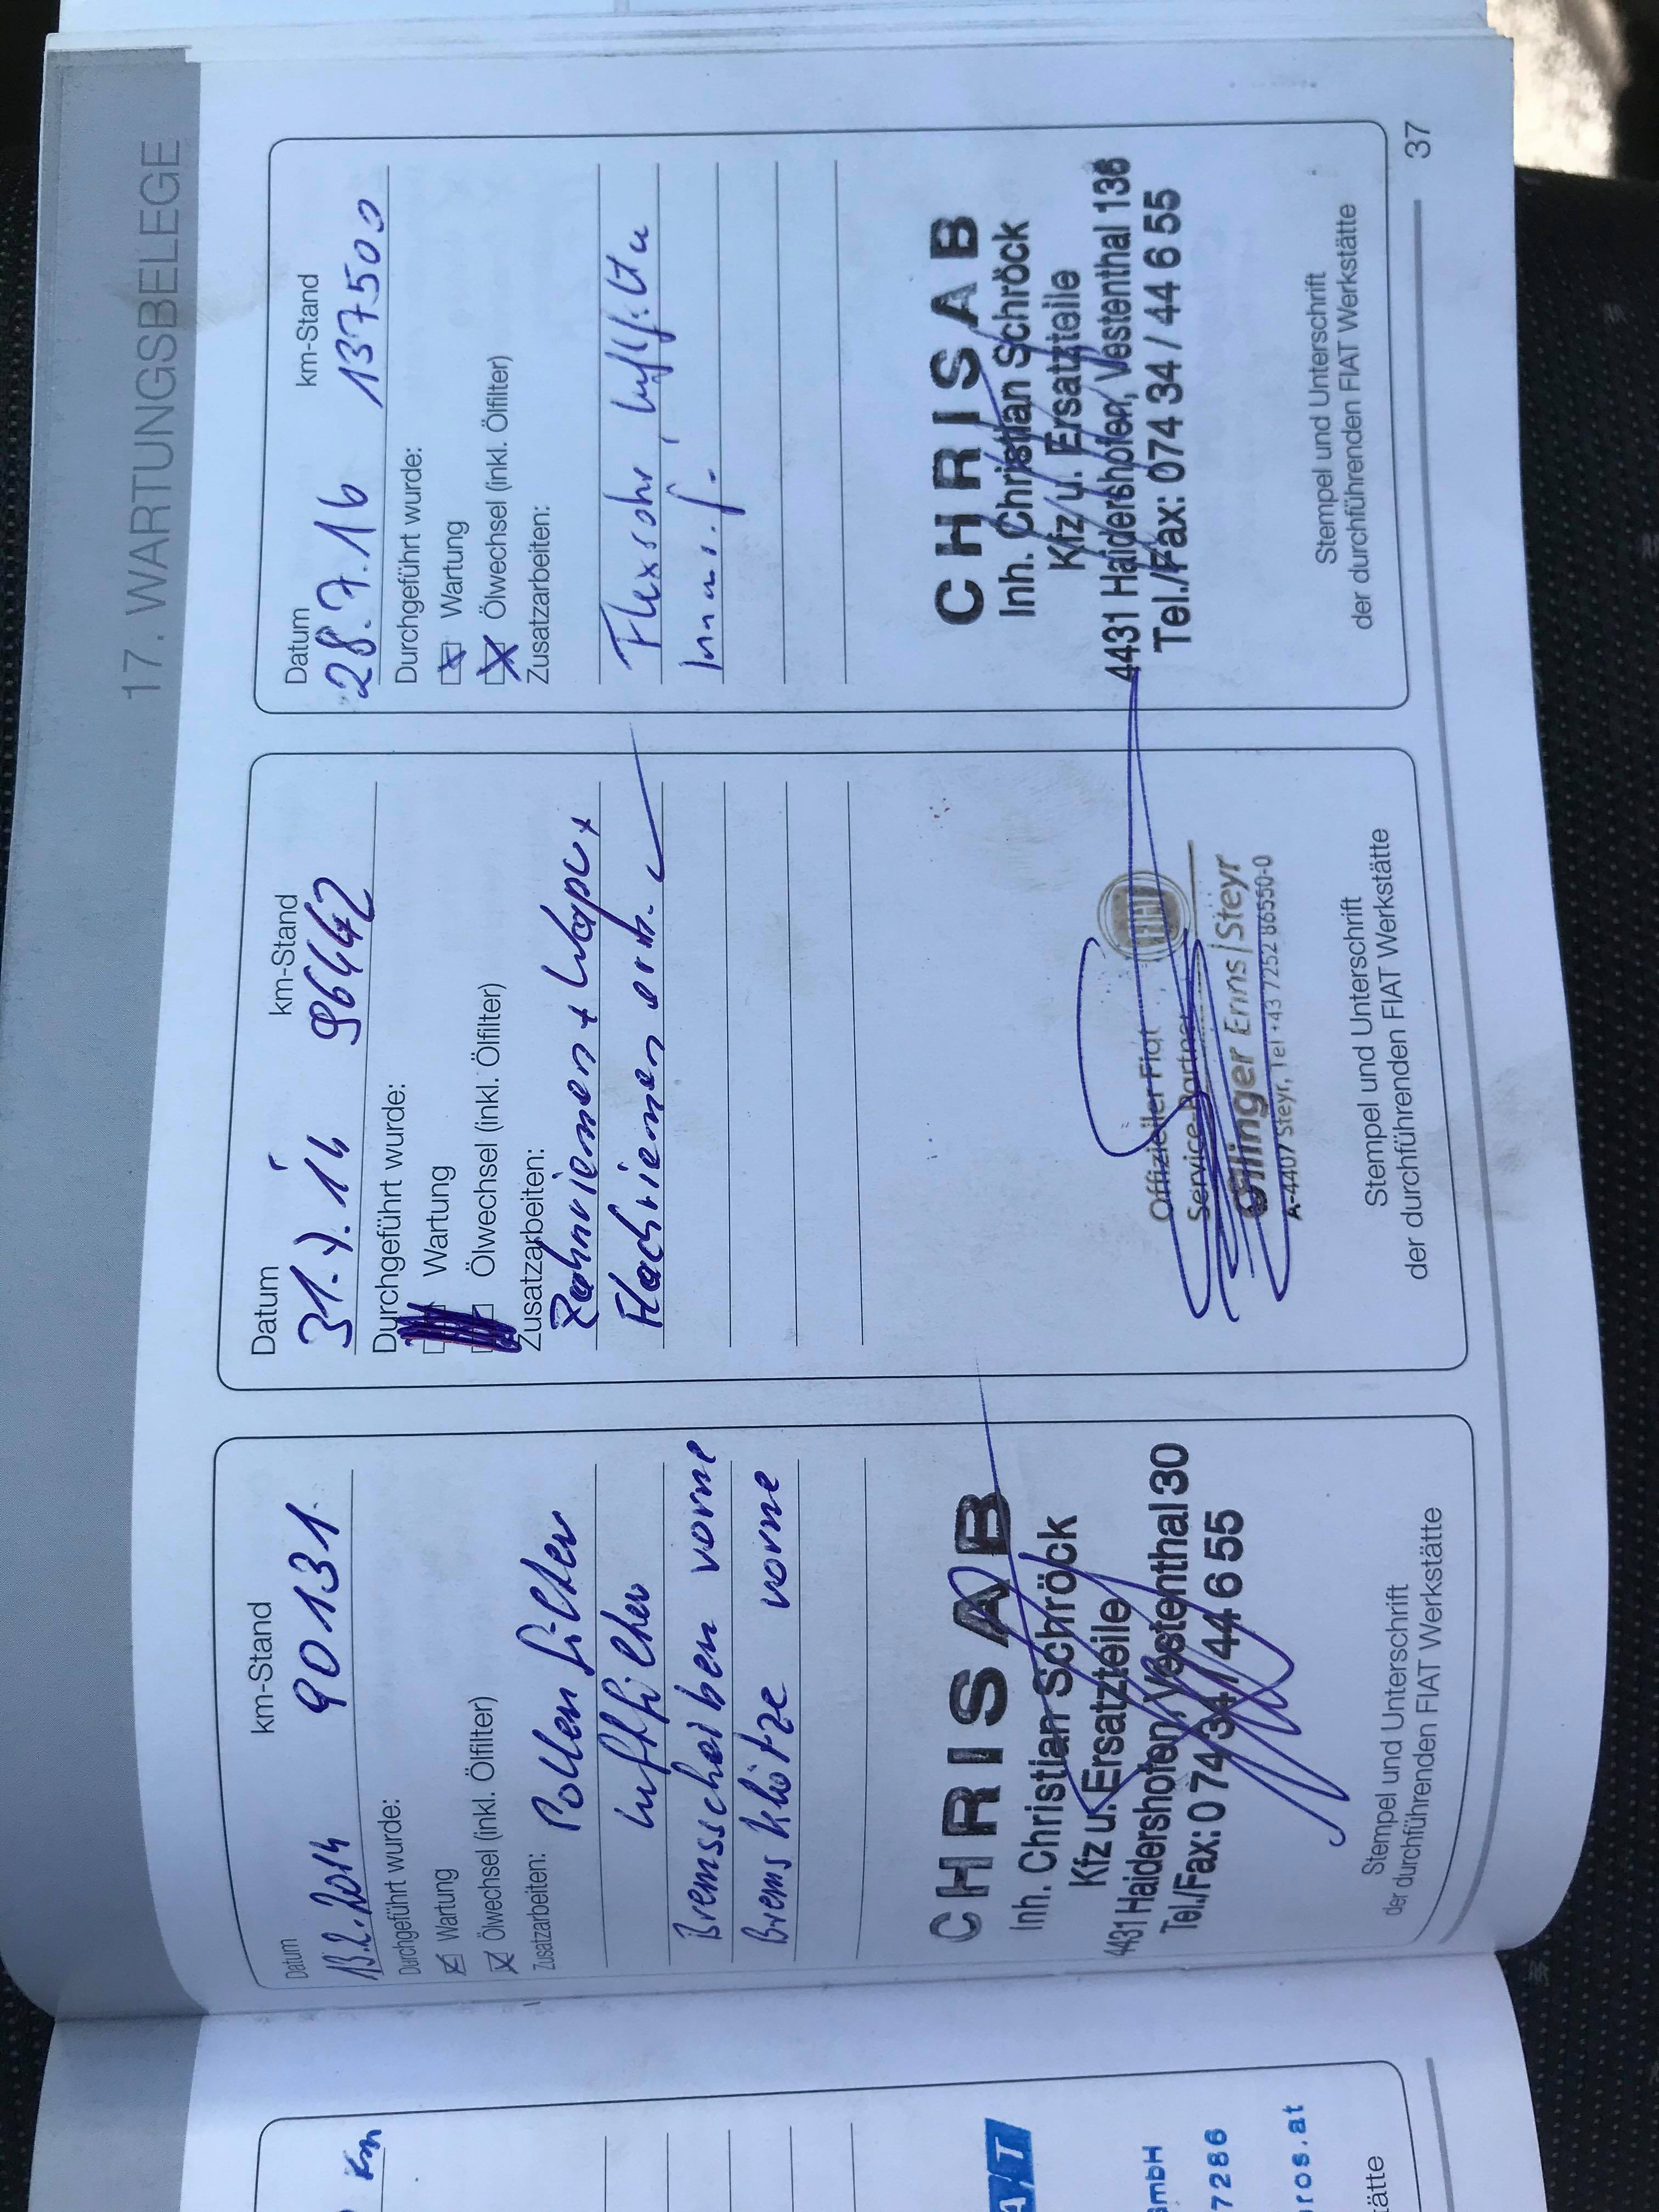 17. WARTUNGSBELEGE
Km
AT
GmbH
7286
ros.at
tätte
Datum
km-Stand
13.2.2014
90131
Durchgeführt wurde:
Wartung
Ölwechsel (inkl. Ölfilter)
Zusatzarbeiten:
Pollenfilter
Luftfilter
Bremsscheiben vorne
Bremsklötze vorne
CHRISAB
Inh. Christian Schröck
Kfz u. Ersatzteile
4431 Haidershofen, Vestenthal 30
Tel./Fax: 0 74 34 / 44 6 55
Stempel und Unterschrift
der durchführenden FIAT Werkstätte
Datum
km-Stand
31.7.14
96442
Durchgeführt wurde:
Wartung
Ölwechsel (inkl. Ölfilter)
Zusatzarbeiten:
Zahnriemen + Wapu +
Flachriemen ern.
Offizieller Fiat
FIAT
Service-Partner
Ölinger Enns/Steyr
A-4407 Steyr, Tel +43 7252 86550-0
Stempel und Unterschrift
der durchführenden FIAT Werkstätte
Datum
km-Stand
28.7.16
137500
Durchgeführt wurde:
Wartung
Ölwechsel (inkl. Ölfilter)
Zusatzarbeiten:
Flexrohr, Luftfilter
CHRISAB
Inh. Christian Schröck
Kfz u. Ersatzteile
4431 Haidershofen, Vestenthal 136
Tel./Fax: 074 34 / 44 6 55
Stempel und Unterschrift
der durchführenden FIAT Werkstätte
37